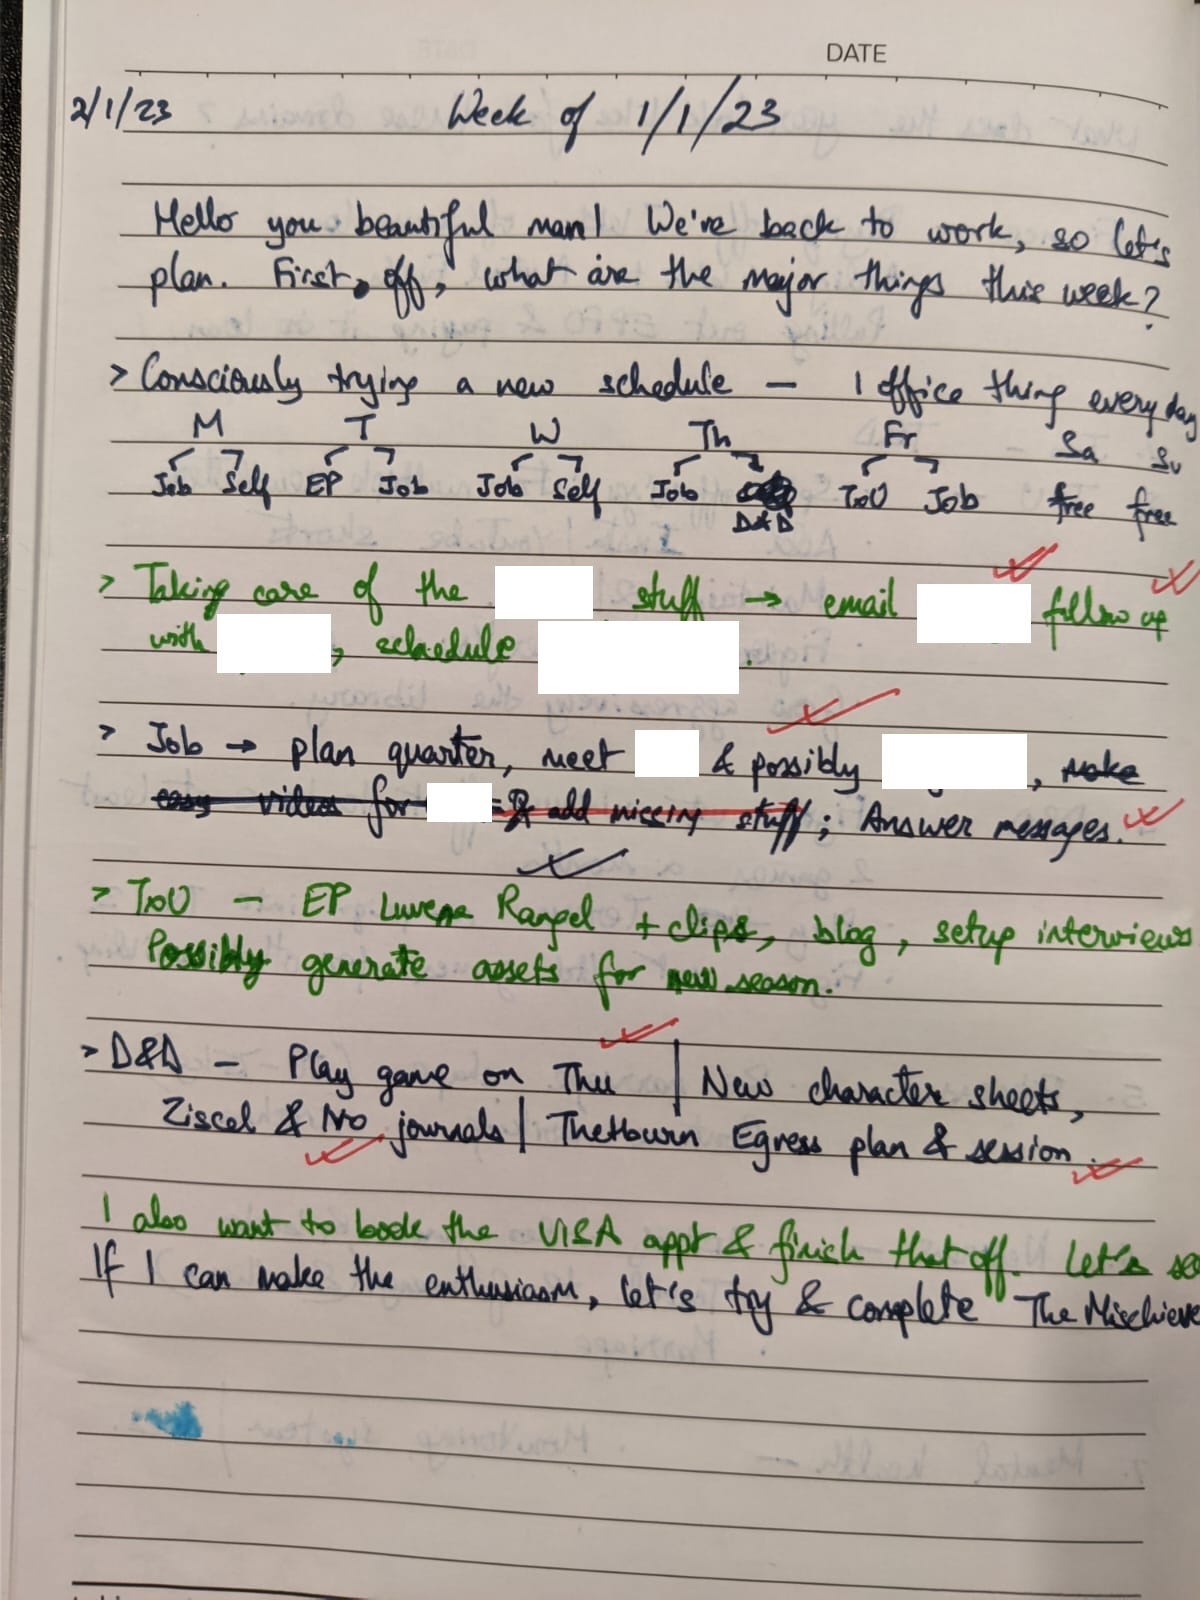 DATE
2/1/23 Week of 1/1/23
Hello you beautiful man! We've back to work, so let's
plan. First off, what are the major things this week?
> Consciously trying a new schedule — 1 office thing every day
M T W Th Fr Sa Su
Job Self EP Job Job Self Job D&D TooU Job free free
> Taking care of the stuff → email follow up
with , schedule .
> Job → plan quarter, meet & possibly , make
easy videos for & add missing stuff; Answer messages.
> — EP Rangel + clips, blog, setup interviews
Possibly generate assets for new season.
> D&D — Play game on Thu | New character sheets,
Ziscel & No journals | Thethurn Egress plan & session.
I also want to book the VISA appt & finish that off. Let's see
If I can make the enthusiasm, let's try & complete The Mischieve